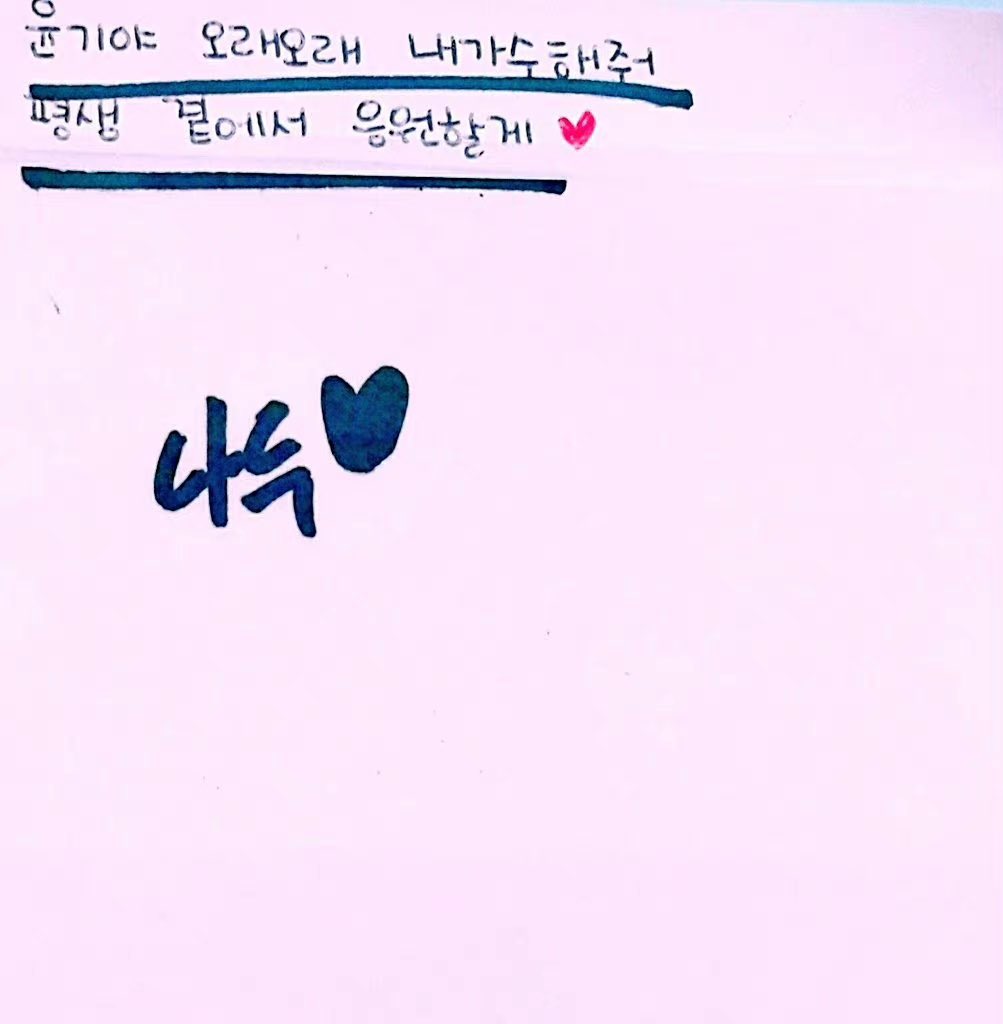 윤기야 오래오래 내가수해줘
평생 곁에서 응원할게 ♥
나두 ♥